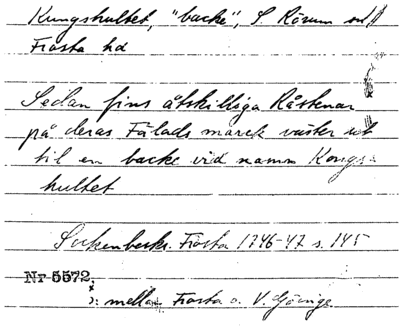 Kungshultet, "backe", S Rörum sn
Frosta hd
Sedan fins åtskilliga Råstenar
på deras Fälads marck väster ut
til en backe vid namn Kongs-
hultet
Sockenbeskr. Frosta 1746-47 s. 145
Nr 5572.
ɔ: mellan Frosta o. V. Göinge